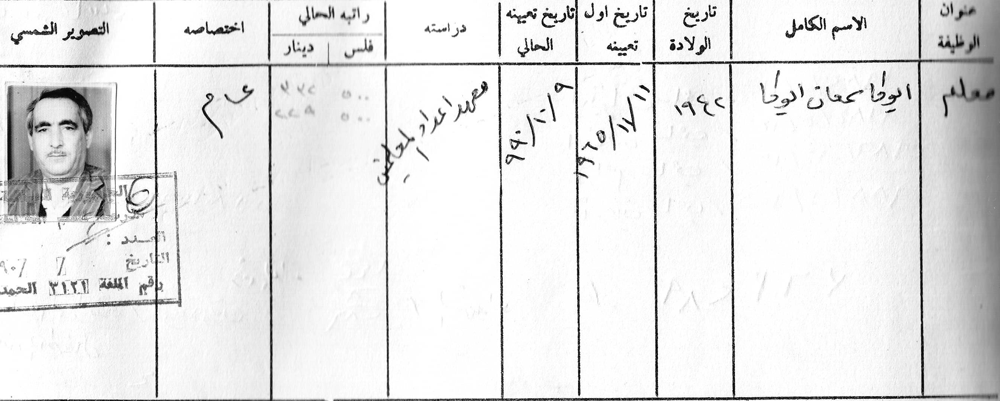 عنوان الوظيفة
الاسم الكامل
تاريخ الولادة
تاريخ اول تعيينه
تاريخ تعيينه الحالي
دراسته
راتبه الحالي
فلس
دينار
اختصاصه
التصوير الشمسي
معلم
ايوكا سمعان ايوكا
١٩٤٢
١٩٦٥/١١/١١
٩٩٠/١٠/٩
معهد اعداد المعلمين
٥٠٠
٥٠٠
عام
التاريخ / /
رقم الملفة ٣١٢١